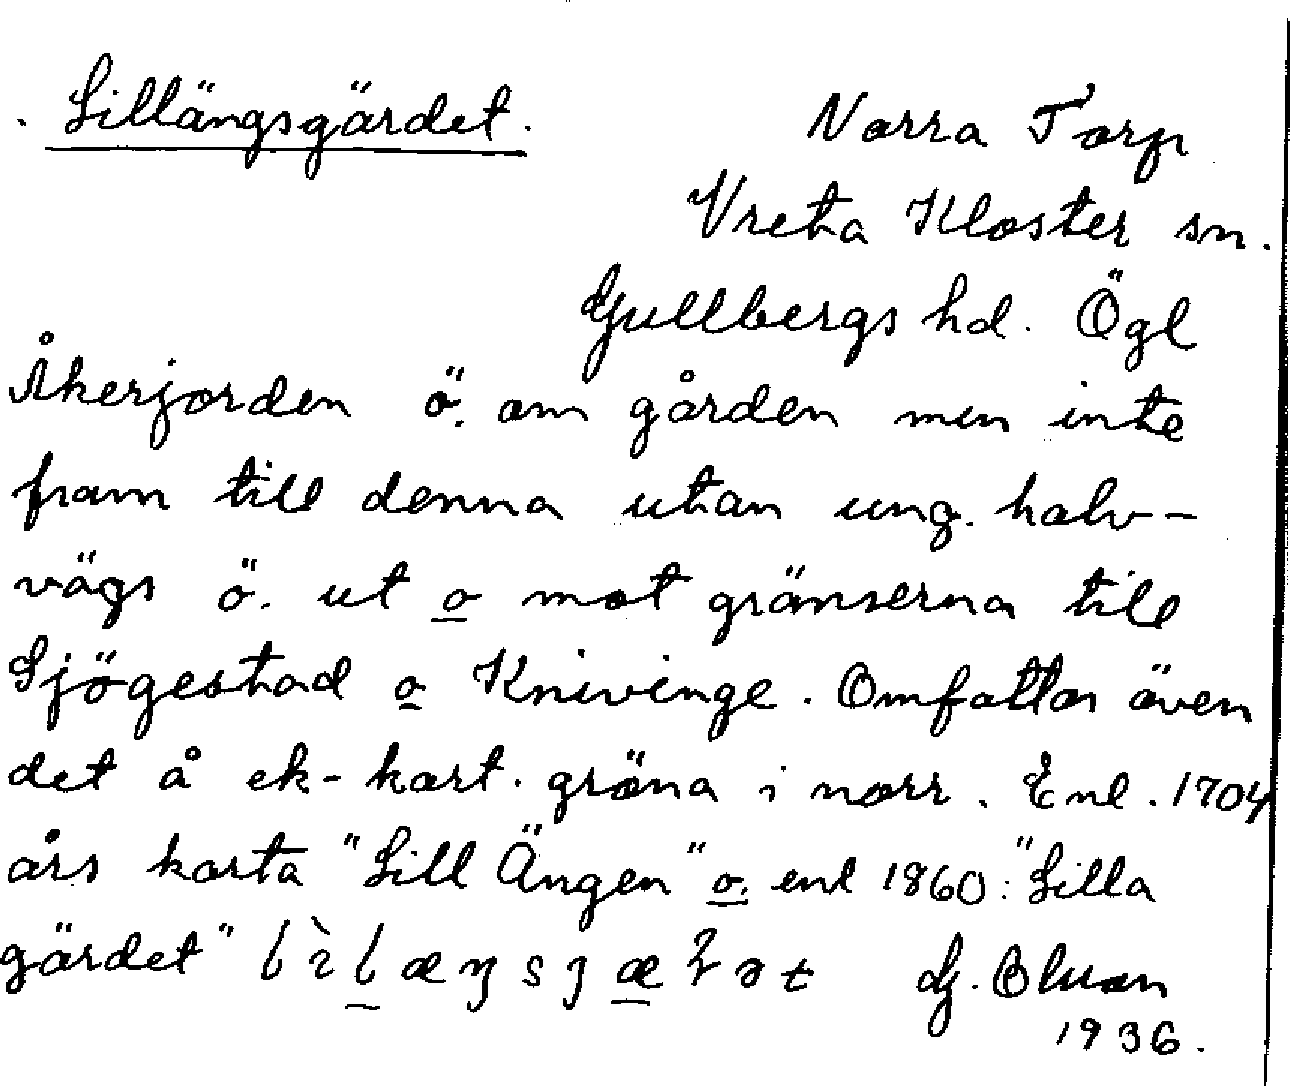 Lillängsgärdet.
Norra Torp
Vreta Kloster sn.
Gullbergs hd. Ögl
Åkerjorden ö. om gården men inte
fram till denna utan ung. halv-
vägs ö. ut o mot gränserna till
Sjögestad o Knivinge. Omfattar även
det å ek-kart. gröna i norr. Enl. 1704
års karta "Lill Ängen" o. enl 1860: "Lilla
gärdet"
1936.